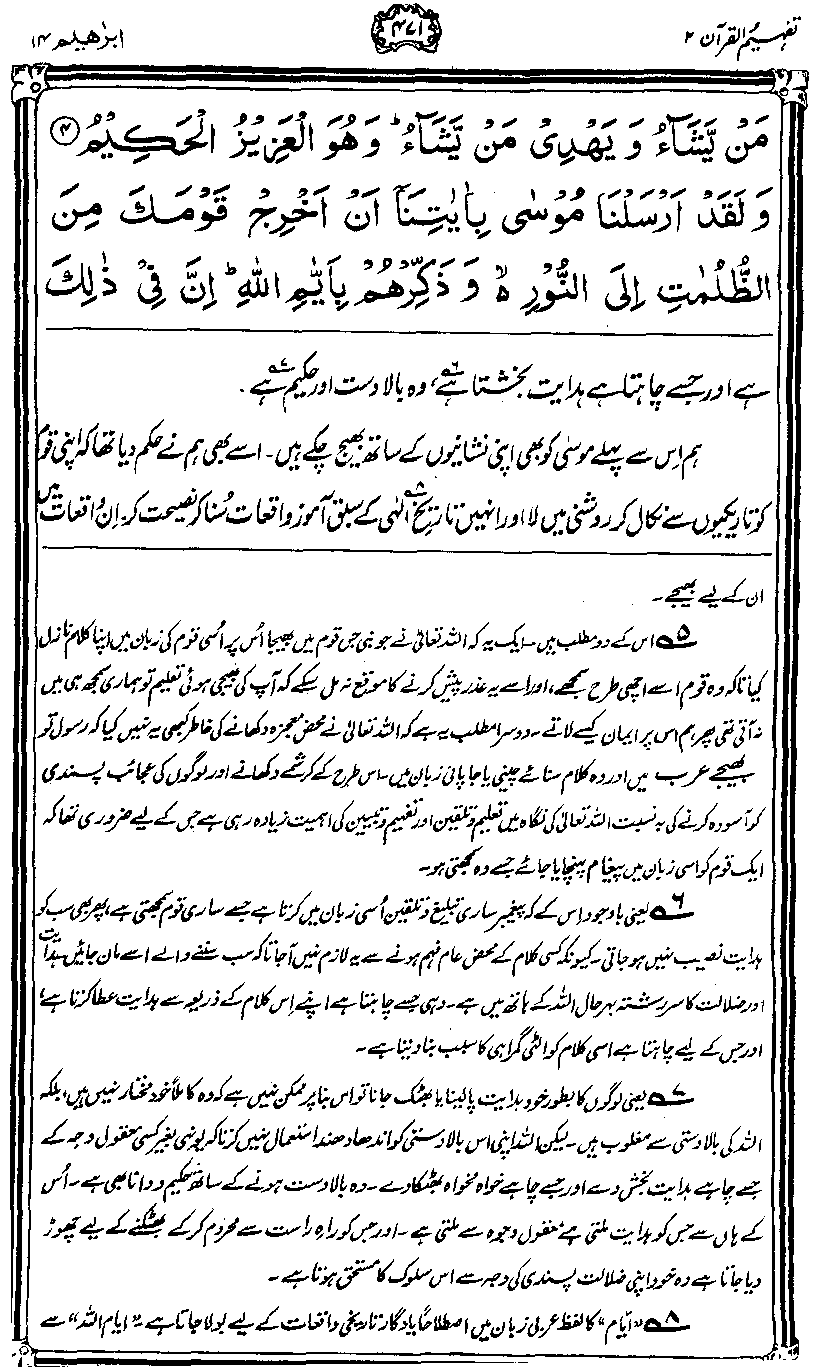 تفہیم القرآن ۲
۴۷۱
ابرٰھیم ۱۴
مَنْ يَّشَآءُ وَ يَهْدِىْ مَنْ يَّشَآءُ ؕ وَ هُوَ الْعَزِيْزُ الْحَكِيْمُ ۴
وَ لَقَدْ اَرْسَلْنَا مُوْسٰى بِاٰيٰتِنَاۤ اَنْ اَخْرِجْ قَوْمَكَ مِنَ
الظُّلُمٰتِ اِلَى النُّوْرِ ۙ۬ وَ ذَكِّرْهُمْ بِاَيّٰىمِ اللّٰهِ ؕ اِنَّ فِىْ ذٰلِكَ
ہے اور جسے چاہتا ہے ہدایت بخشتا ہے۶، وہ بالا دست اور حکیم ہے۷۔
ہم اِس سے پہلے موسیٰ کو بھی اپنی نشانیوں کے ساتھ بھیج چکے ہیں۔ اسے بھی ہم نے حکم دیا تھا کہ اپنی قوم
کو تاریکیوں سے نکال کر روشنی میں لا اور انہیں تاریخِ الٰہی۸ کے سبق آموز واقعات سُنا کر نصیحت کر۔ اِن واقعات میں
ان کے لیے بھیجے۔
۵ اس کے دو مطلب ہیں۔ ایک یہ کہ اللہ تعالیٰ نے جو نبی جس قوم میں بھیجا اُس پر اُسی قوم کی زبان میں اپنا کلام نازل
کیا تاکہ وہ قوم اسے اچھی طرح سمجھے، اور اسے یہ عذر پیش کرنے کا موقع نہ مل سکے کہ آپ کی بھیجی ہوئی تعلیم تو ہماری سمجھ ہی میں
نہ آتی تھی پھر ہم اس پر ایمان کیسے لاتے۔ دوسرا مطلب یہ ہے کہ اللہ تعالیٰ نے محض معجزہ دکھانے کی خاطر کبھی یہ نہیں کیا کہ رسول تو
بھیجے عرب میں اور وہ کلام سنائے چینی یا جاپانی زبان میں۔ اس طرح کے کرشمے دکھانے اور لوگوں کی عجائب پسندی
کو آسودہ کرنے کی بہ نسبت اللہ تعالیٰ کی نگاہ میں تعلیم و تلقین اور تفہیم و تبیین کی اہمیت زیادہ رہی ہے جس کے لیے ضروری تھا کہ
ایک قوم کو اسی زبان میں پیغام پہنچایا جائے جسے وہ سمجھتی ہو۔
۶ یعنی باوجود اس کے کہ پیغمبر ساری تبلیغ و تلقین اُسی زبان میں کرتا ہے جسے ساری قوم سمجھتی ہے، پھر بھی سب کو
ہدایت نصیب نہیں ہو جاتی۔ کیونکہ کسی کلام کے محض عام فہم ہونے سے یہ لازم نہیں آ جاتا کہ سب سننے والے اسے مان جائیں ہدایت
اور ضلالت کا سر رشتہ بہر حال اللہ کے ہاتھ میں ہے۔ وہی جسے چاہتا ہے اپنے اِس کلام کے ذریعہ سے ہدایت عطا کرتا ہے،
اور جس کے لیے چاہتا ہے اسی کلام کو الٹی گمراہی کا سبب بنا دیتا ہے۔
۷ یعنی لوگوں کا بطور خود ہدایت پا لینا یا بھٹک جانا تو اس بنا پر ممکن نہیں ہے کہ وہ کاملاً خود مختار نہیں ہیں، بلکہ
اللہ کی بالادستی سے مغلوب ہیں۔ لیکن اللہ اپنی اس بالادستی کو اندھا دھند استعمال نہیں کرتا کہ یونہی بغیر کسی معقول وجہ کے
جسے چاہے ہدایت بخش دے اور جسے چاہے خواہ مخواہ بھٹکا دے۔ وہ بالادست ہونے کے ساتھ حکیم و دانا بھی ہے۔ اُس
کے ہاں سے جس کو ہدایت ملتی ہے معقول وجوہ سے ملتی ہے۔ اور جس کو راہِ راست سے محروم کر کے بھٹکنے کے لیے چھوڑ
دیا جاتا ہے وہ خود اپنی ضلالت پسندی کی وجہ سے اس سلوک کا مستحق ہوتا ہے۔
۸ "ایام" کا لفظ عربی زبان میں اصطلاحاً یادگار تاریخی واقعات کے لیے بولا جاتا ہے۔ "ایام اللہ" سے